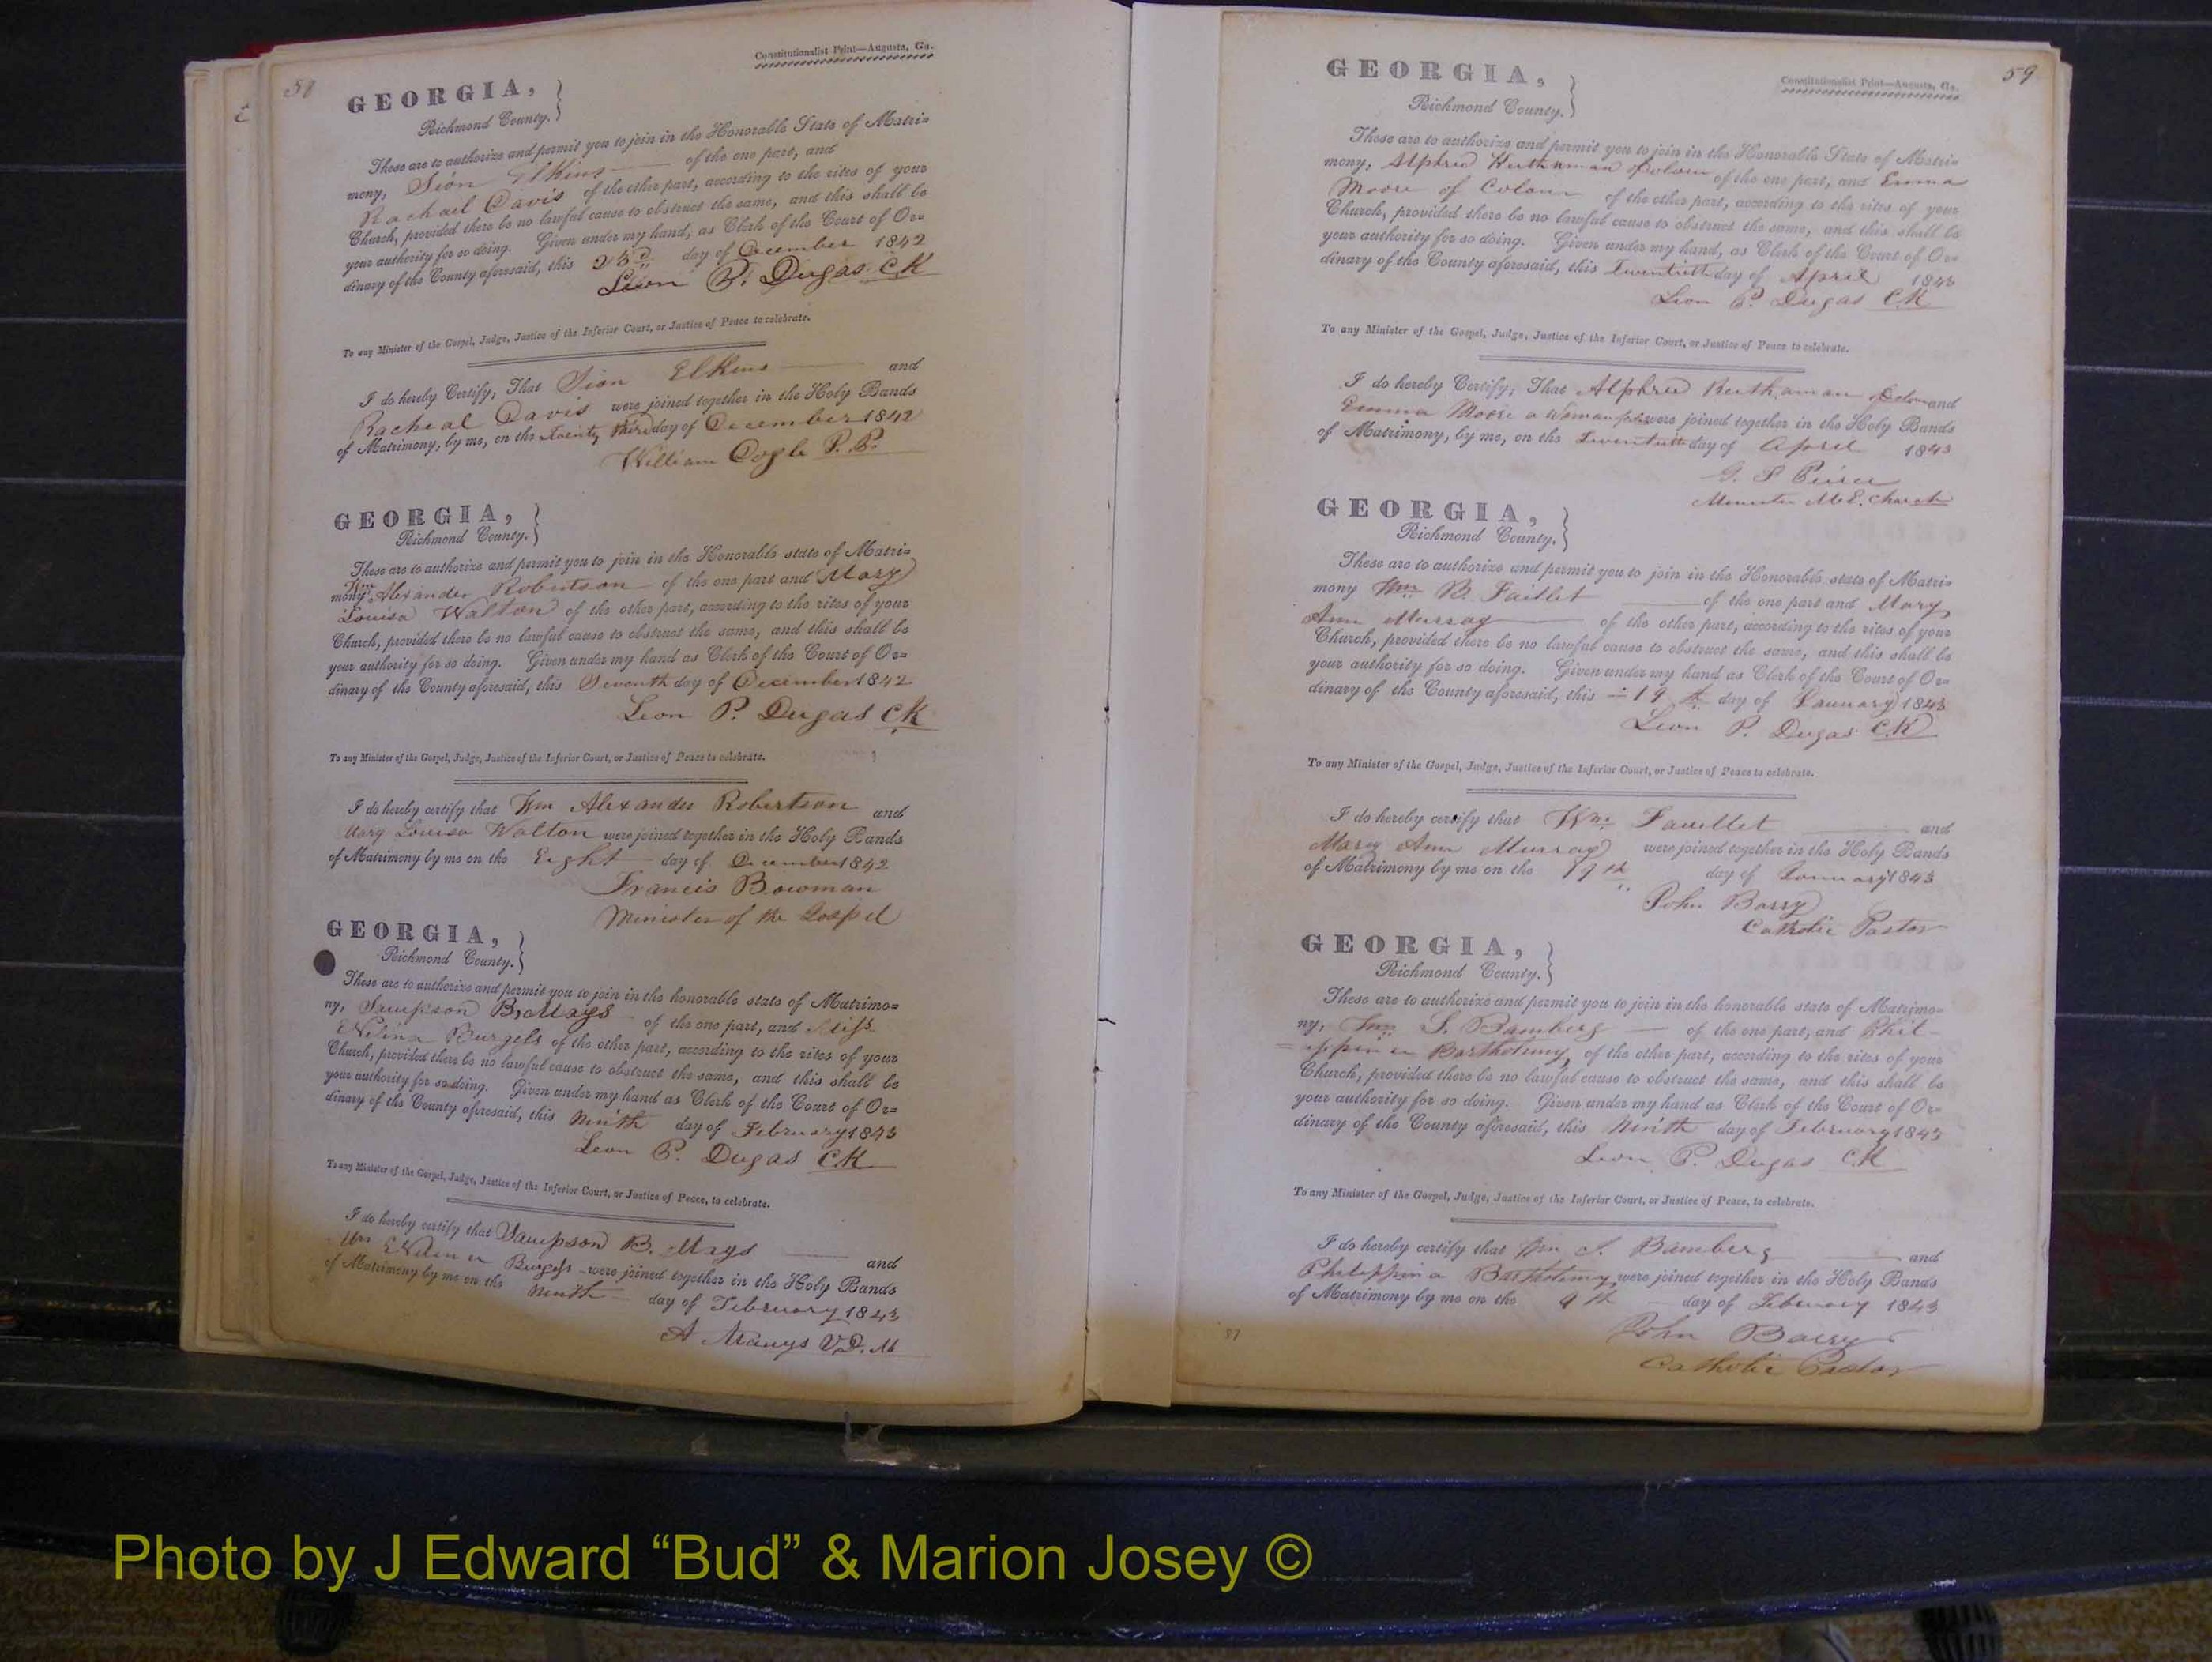 58
Constitutionalist Print—Augusta, Ga.
GEORGIA,
Richmond County.
These are to authorize and permit you to join in the Honorable State of Matri-
mony, Sion Elkins of the one part, and
Rachael Davis of the other part, according to the rites of your
Church, provided there be no lawful cause to obstruct the same, and this shall be
your authority for so doing. Given under my hand, as Clerk of the Court of Or-
dinary of the County aforesaid, this 23d day of December 1842
Leon P. Dugas CK
To any Minister of the Gospel, Judge, Justice of the Inferior Court, or Justice of Peace to celebrate.
I do hereby Certify, That Sion Elkins and
Racheal Davis were joined together in the Holy Bands
of Matrimony, by me, on the Twenty third day of December 1842
William Cogle
GEORGIA,
Richmond County.
These are to authorize and permit you to join in the Honorable state of Matri-
mony Wm Alexander Robertson of the one part and Mary
Louisa Walton of the other part, according to the rites of your
Church, provided there be no lawful cause to obstruct the same, and this shall be
your authority for so doing. Given under my hand as Clerk of the Court of Or-
dinary of the County aforesaid, this Seventh day of December 1842
Leon P. Dugas CK
To any Minister of the Gospel, Judge, Justice of the Inferior Court, or Justice of Peace to celebrate.
I do hereby certify that Wm Alexander Robertson and
Mary Louisa Walton were joined together in the Holy Bands
of Matrimony by me on the Eight day of December 1842
Francis Bowman
Minister of the Gospel
GEORGIA,
Richmond County.
These are to authorize and permit you to join in the honorable state of Matrimo-
ny, Sampson B. Mays of the one part, and Miss
Burgess of the other part, according to the rites of your
Church, provided there be no lawful cause to obstruct the same, and this shall be
your authority for so doing. Given under my hand as Clerk of the Court of Or-
dinary of the County aforesaid, this Ninth day of February 1843
Leon P. Dugas CK
To any Minister of the Gospel, Judge, Justice of the Inferior Court, or Justice of Peace, to celebrate.
I do hereby certify that Sampson B. Mays and
Burgess were joined together in the Holy Bands
of Matrimony by me on the Ninth day of February 1843
A V.D.M
59
Constitutionalist Print—Augusta, Ga.
GEORGIA,
Richmond County.
These are to authorize and permit you to join in the Honorable State of Matri-
mony, Alphred of Colour of the one part, and Emma
Moore of Colour of the other part, according to the rites of your
Church, provided there be no lawful cause to obstruct the same, and this shall be
your authority for so doing. Given under my hand, as Clerk of the Court of Or-
dinary of the County aforesaid, this Twentieth day of April 1843
Leon P. Dugas CK
To any Minister of the Gospel, Judge, Justice of the Inferior Court, or Justice of Peace to celebrate.
I do hereby Certify, That Alphred and
Emma Moore a Woman were joined together in the Holy Bands
of Matrimony, by me, on the Twentieth day of April 1843
G. Peirce
Minister M.E. Church
GEORGIA,
Richmond County.
These are to authorize and permit you to join in the Honorable state of Matri-
mony Wm B. Faillet of the one part and Mary
Ann Murray of the other part, according to the rites of your
Church, provided there be no lawful cause to obstruct the same, and this shall be
your authority for so doing. Given under my hand as Clerk of the Court of Or-
dinary of the County aforesaid, this 19th day of January 1843
Leon P. Dugas CK
To any Minister of the Gospel, Judge, Justice of the Inferior Court, or Justice of Peace to celebrate.
I do hereby certify that Wm. Fauillet and
Mary Ann Murray were joined together in the Holy Bands
of Matrimony by me on the 19th day of January 1843
John Barry
Catholic Pastor
GEORGIA,
Richmond County.
These are to authorize and permit you to join in the honorable state of Matrimo-
ny, Wm S. Bamberg of the one part, and Phil-
ippina Bartholemy, of the other part, according to the rites of your
Church, provided there be no lawful cause to obstruct the same, and this shall be
your authority for so doing. Given under my hand as Clerk of the Court of Or-
dinary of the County aforesaid, this Ninth day of February 1843
Leon P. Dugas CK
To any Minister of the Gospel, Judge, Justice of the Inferior Court, or Justice of Peace, to celebrate.
I do hereby certify that Wm S. Bamberg and
Philippina Bartholemy were joined together in the Holy Bands
of Matrimony by me on the 9th day of February 1843
John Barry
Catholic Pastor
Photo by J Edward “Bud” & Marion Josey ©